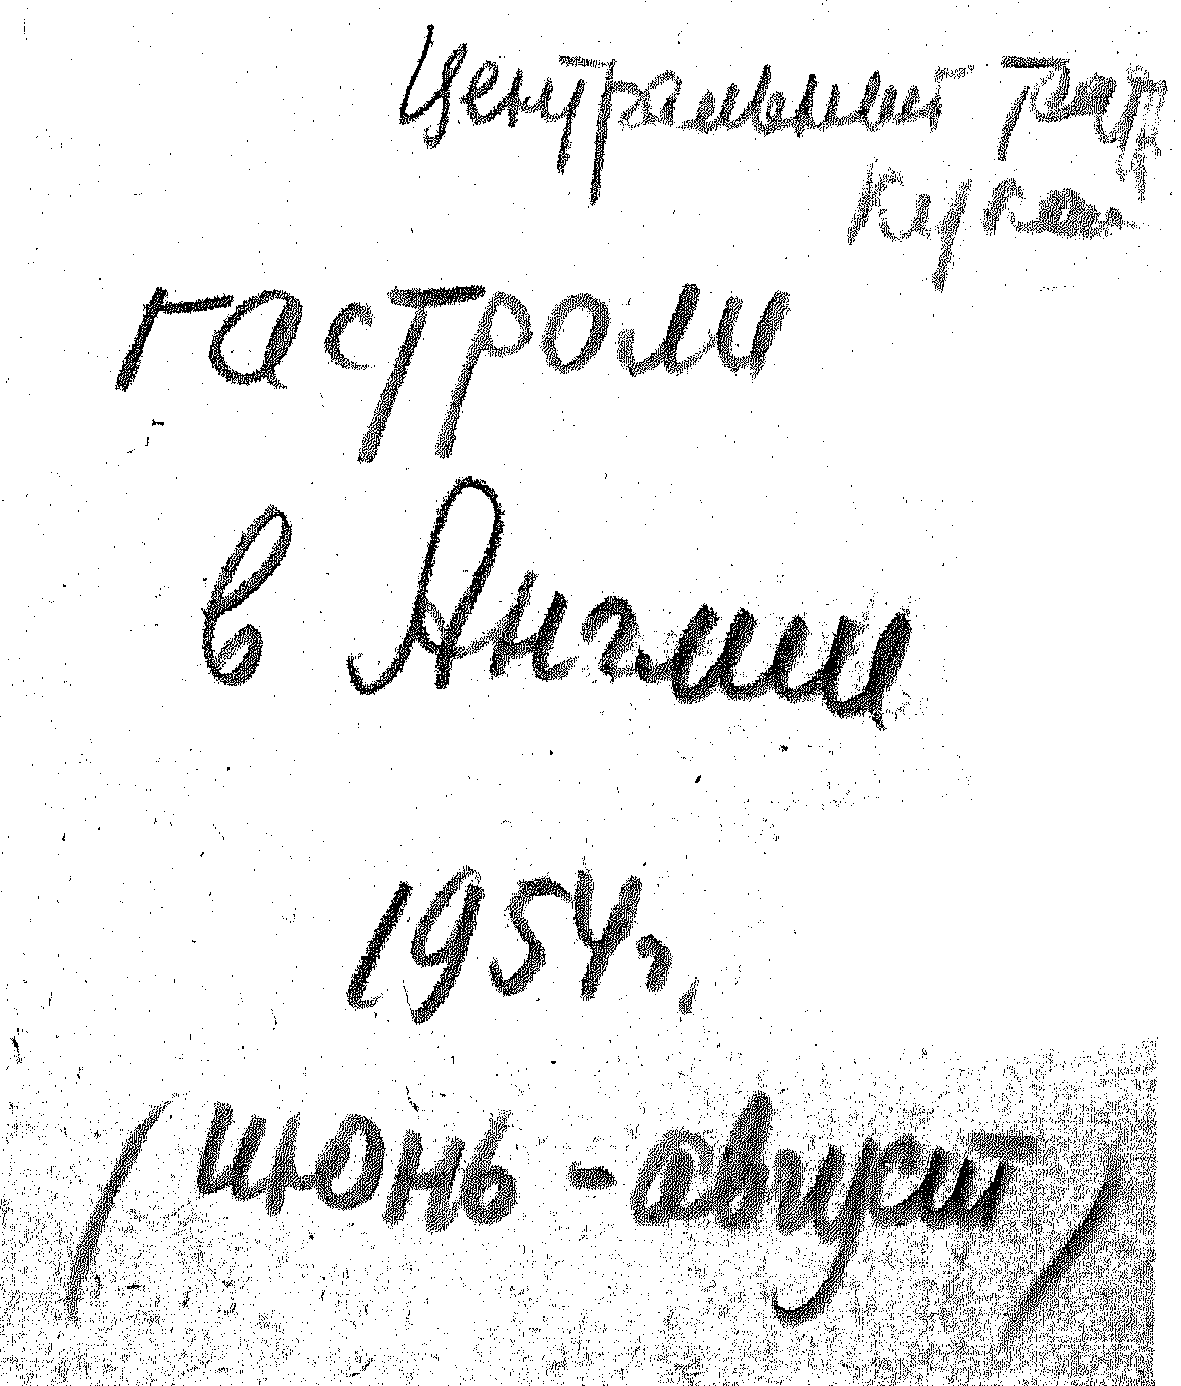 Центральный театр
кукол
гастроли
в Англии
1954 г.
(июнь - август)